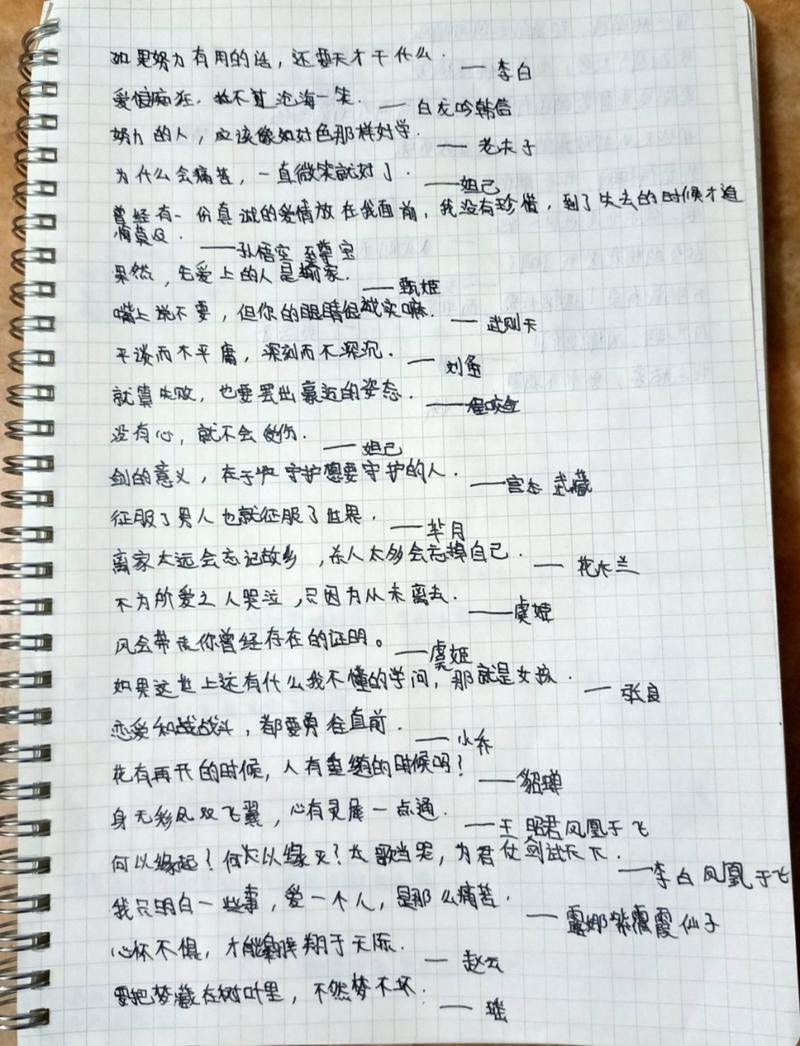 如果努力有用的话，还要天才干什么．——李白
爱恨痴狂，敌不过沧海一笑．——白龙吟韩信
努力的人，应该像好色那样好学．——老夫子
为什么会痛苦，一直微笑就好了．——妲己
曾经有一份真诚的爱情放在我面前，我没有珍惜，到了失去的时候才追
悔莫及．——孙悟空 至尊宝
果然，先爱上的人是输家．——甄姬
嘴上说不要，但你的眼睛很诚实嘛．——武则天
平淡而不平庸，深刻而不深沉．——刘备
就算失败，也要摆出豪迈的姿态．——程咬金
没有心，就不会受伤．——妲己
剑的意义，在于 守护想要守护的人．——宫本 武藏
征服了男人也就征服了世界．——芈月
离家太远会忘记故乡，杀人太多会忘掉自己．——花木兰
不为所爱之人哭泣，只因为从未离去．——虞姬
风会带走你曾经存在的证明。——虞姬
如果这世上还有什么我不懂的学问，那就是女孩．——张良
恋爱和战战斗，都要勇往直前．——小乔
花有再开的时候，人有重逢的时候吗？——貂蝉
身无彩凤双飞翼，心有灵犀一点通．——王昭君凤凰于飞
何以缘起？何以缘灭？长歌当哭，为君仗剑试天下．——李白凤凰于飞
我只明白一些事，爱一个人，是那么痛苦．——露娜紫霞仙子
心怀不惧，才能翱翔于天际．——赵云
要把梦藏在树叶里，不然梦不坏．——瑶